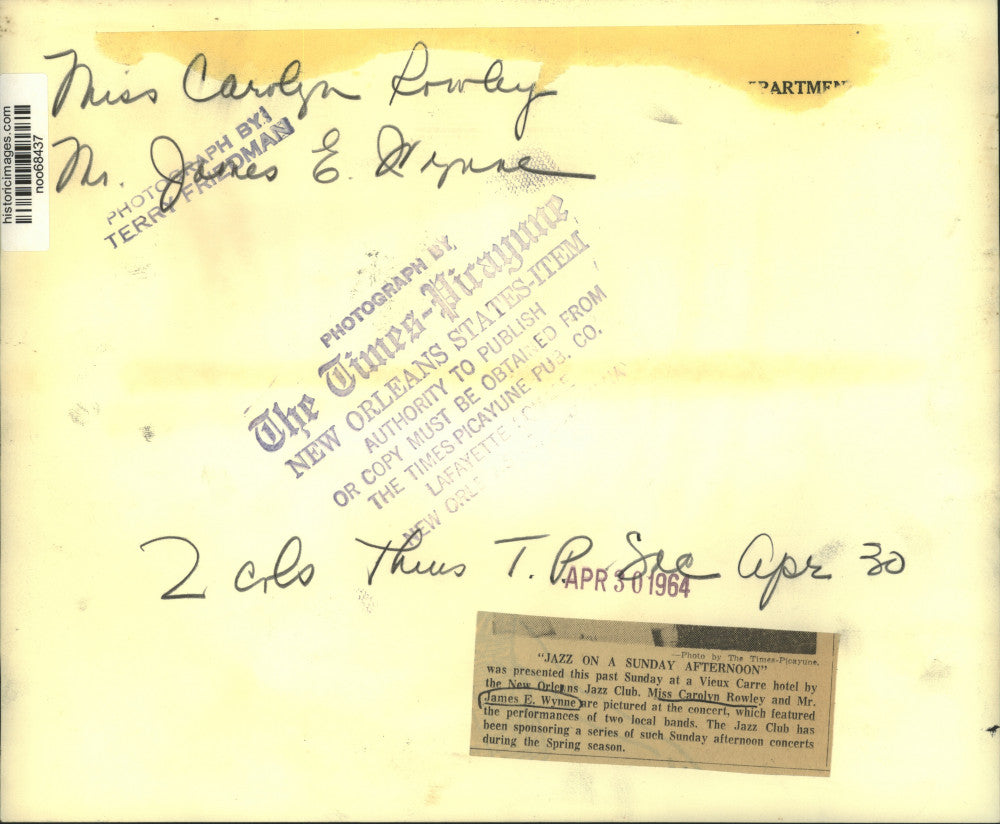 Miss Carolyn Rowley
PARTMEN
Mr. James E. Wynne
historicimages.com
noo68437
PHOTOGRAPH BY:
TERRY FRIEDMAN
PHOTOGRAPH BY
The Times-Picayune
NEW ORLEANS STATES-ITEM
AUTHORITY TO PUBLISH
OR COPY MUST BE OBTAINED FROM
THE TIMES-PICAYUNE PUB. CO.
LAFAYETTE
NEW ORLE
2 cols Thurs T.P. Soc Apr 30
APR 30 1964
—Photo by The Times-Picayune.
"JAZZ ON A SUNDAY AFTERNOON"
was presented this past Sunday at a Vieux Carre hotel by
the New Orleans Jazz Club. Miss Carolyn Rowley and Mr.
James E. Wynne are pictured at the concert, which featured
the performances of two local bands. The Jazz Club has
been sponsoring a series of such Sunday afternoon concerts
during the Spring season.